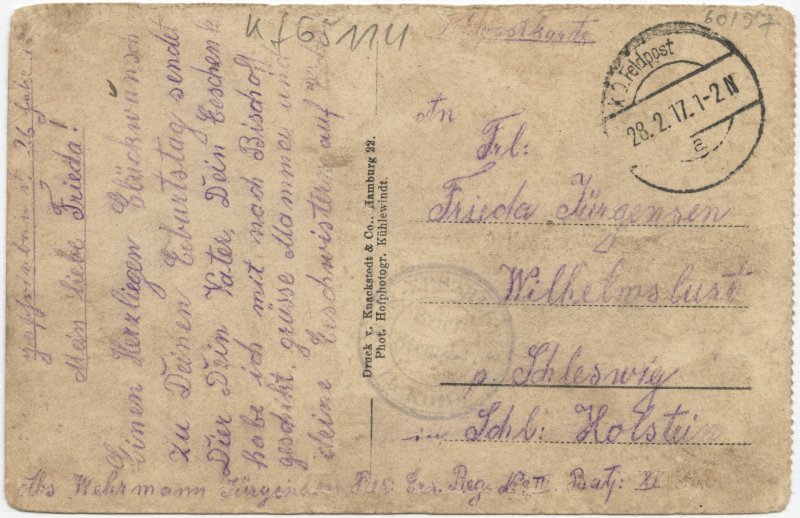 Kf65114
60197
Feldpostkarte
K. D. Feldpost
28.2.17.1-2 N
a
Mein liebe Frieda!
Einen Herzliegen Glückwunsch
zu Deinen Geburtstag sendet
Dier Dein Vater, Dein Geschenk
habe ich mit nach Bischoff
geschikt. grüsse Mamma und
deine Geschwistern auf
Druck v. Knackstedt & Co., Hamburg 22.
Phot. Hofphotogr. Kühlewindt.
An
Frl:
Frieda Jürgensen
Wilhelmslust
p. Schleswig
in Schl: Holstein
Abs Wehrmann Jürgensen Ers. Reg. Batj: XI